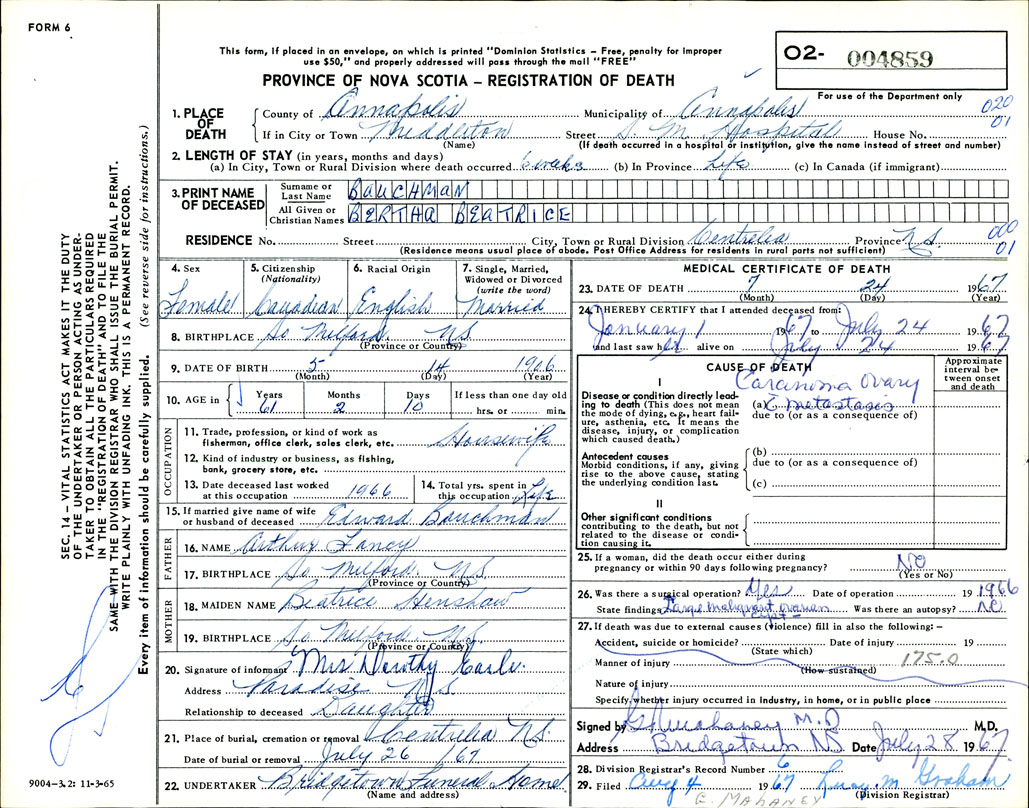 FORM 6
This form, if placed in an envelope, on which is printed "Dominion Statistics – Free, penalty for improper
use $50," and properly addressed will pass through the mail "FREE"
O2- 004859
PROVINCE OF NOVA SCOTIA – REGISTRATION OF DEATH
For use of the Department only
1. PLACE OF DEATH
County of Annapolis Municipality of Annapolis 020
If in City or Town Middleton Street S. M. Hospital House No. 01
(Name) (If death occurred in a hospital or institution, give the name instead of street and number)
2. LENGTH OF STAY (in years, months and days)
(a) In City, Town or Rural Division where death occurred 6 weeks (b) In Province Life (c) In Canada (if immigrant)
3. PRINT NAME OF DECEASED
Surname or Last Name BAUCHMAN
All Given or Christian Names BERTHA BEATRICE
RESIDENCE No. Street City, Town or Rural Division Centrelea Province N.S. 000
(Residence means usual place of abode. Post Office Address for residents in rural parts not sufficient) 01
4. Sex Female
5. Citizenship (Nationality) Canadian
6. Racial Origin English
7. Single, Married, Widowed or Divorced (write the word) Married
8. BIRTHPLACE So Milford N.S.
(Province or Country)
9. DATE OF BIRTH 5 14 1906
(Month) (Day) (Year)
10. AGE in Years Months Days If less than one day old
61 2 10 hrs. or min.
OCCUPATION
11. Trade, profession, or kind of work as
fisherman, office clerk, sales clerk, etc. Housewife
12. Kind of industry or business, as fishing,
bank, grocery store, etc.
13. Date deceased last worked
at this occupation 1966
14. Total yrs. spent in
this occupation Life
15. If married give name of wife
or husband of deceased Edward Bauchman
FATHER
16. NAME Arthur
17. BIRTHPLACE So Milford N.S.
(Province or Country)
MOTHER
18. MAIDEN NAME Beatrice Henshaw
19. BIRTHPLACE So Milford N.S.
(Province or Country)
20. Signature of informant Mrs Dorothy
Address Paradise N.S.
Relationship to deceased Daughter
21. Place of burial, cremation or removal Centrelea N.S.
Date of burial or removal July 26 1967
22. UNDERTAKER Bridgetown Funeral Home
(Name and address)
MEDICAL CERTIFICATE OF DEATH
23. DATE OF DEATH 7 24 1967
(Month) (Day) (Year)
24. I HEREBY CERTIFY that I attended deceased from:
January 1 1967 to July 24 1967
and last saw her alive on July 24 1967
CAUSE OF DEATH
Approximate interval between onset and death
I
Disease or condition directly leading to death (This does not mean the mode of dying, e.g., heart failure, asthenia, etc. It means the disease, injury, or complication which caused death.)
Carcinoma Ovary
(a) c metastasis
due to (or as a consequence of)
Antecedent causes
Morbid conditions, if any, giving rise to the above cause, stating the underlying condition last.
(b)
due to (or as a consequence of)
(c)
II
Other significant conditions
contributing to the death, but not related to the disease or condition causing it.
25. If a woman, did the death occur either during
pregnancy or within 90 days following pregnancy? NO
(Yes or No)
26. Was there a surgical operation? Yes Date of operation 1966
State findings Large malignant ovarian cyst Was there an autopsy? No
27. If death was due to external causes (violence) fill in also the following: –
Accident, suicide or homicide? Date of injury 19
(State which)
Manner of injury 175.0
(How sustained)
Nature of injury
Specify whether injury occurred in industry, in home, or in public place
Signed by G Mahaney M.D M.D.
Address Bridgetown NS Date July 28 1967
28. Division Registrar's Record Number 6
29. Filed Aug 4 1967 M. Graham
(Division Registrar)
G. MAHANEY
SEC. 14 – VITAL STATISTICS ACT MAKES IT THE DUTY
OF THE UNDERTAKER OR PERSON ACTING AS UNDER-
TAKER TO OBTAIN ALL THE PARTICULARS REQUIRED
IN THE "REGISTRATION OF DEATH" AND TO FILE THE
SAME WITH THE DIVISION REGISTRAR WHO SHALL ISSUE THE BURIAL PERMIT.
WRITE PLAINLY WITH UNFADING INK. THIS IS A PERMANENT RECORD.
Every item of information should be carefully supplied. (See reverse side for instructions.)
9004-3.2: 11-3-65